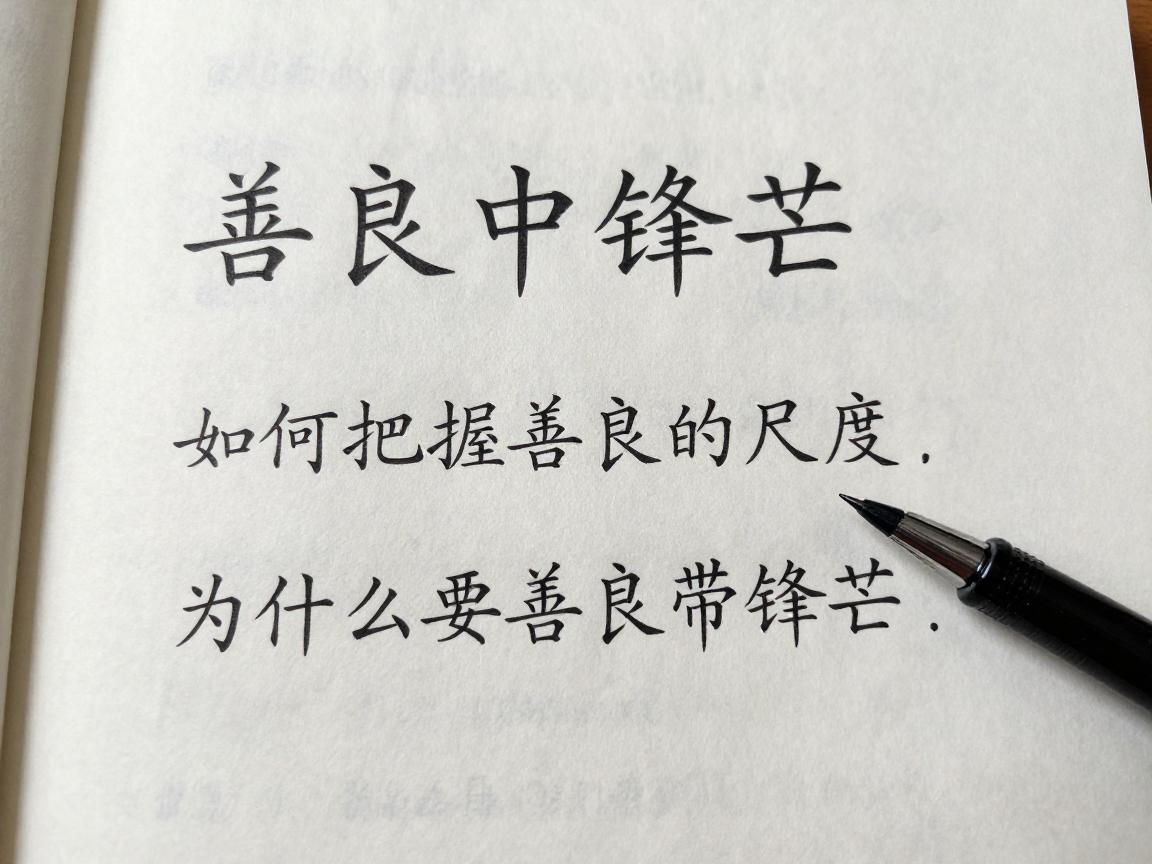 善良中锋芒
如何把握善良的尺度.
为什么要善良带锋芒.